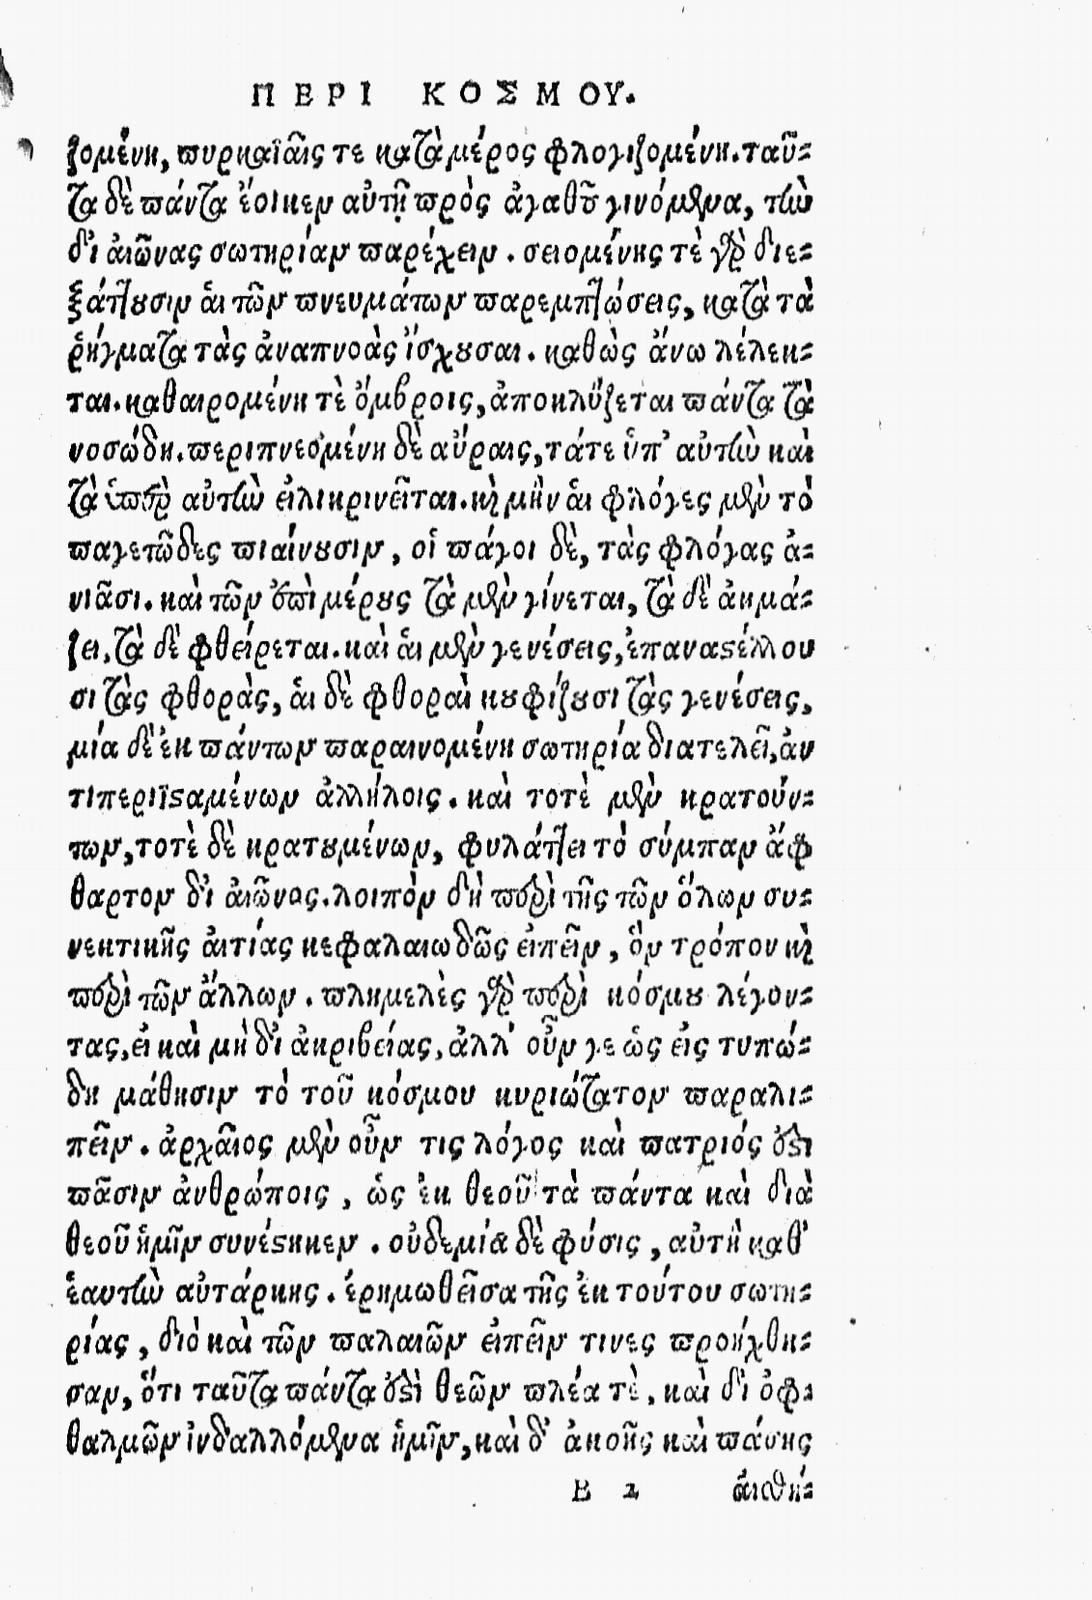 ΠΕΡΙ ΚΟΣΜΟΥ.
ζομένη, πυρκαϊαῖς τε κατὰ μέρος φλογιζομένη. ταῦ-
τα δὲ πάντα ἔοικεν αὐτῇ πρὸς ἀγαθοῦ γινόμενα, τὴν
δι' ἀιῶνας σωτηρίαν παρέχειν. σειομένης τὲ γὰρ διε-
ξάττουσιν ἁι τῶν πνευμάτων παρεμπτώσεις, κατὰ τὰ
ῥήγματα τὰς ἀναπνοὰς ἴσχουσαι. καθὼς ἄνω λέλεκ-
ται. καθαιρομένη τὲ ὄμβροις, ἀποκλύζεται πάντα τὰ
νοσώδη. περιπνεομένη δὲ αὔραις, τάτε ὑπ' αὐτὴν καὶ
τὰ ὑπὲρ αὐτὴν ἐιλικρινεῖται. καὶ μὴν ἁι φλόγες μὲν τὸ
παγετῶδες πιαίνουσιν, οἱ πάγοι δὲ, τὰς φλόγας ἀ-
νιᾶσι. καὶ τῶν ἐπὶ μέρους τὰ μὲν γίνεται, τὰ δὲ ἀκμά-
ζει, τὰ δὲ φθείρεται. καὶ ἁι μὲν γενέσεις, ἐπαναστέλλου
σι τὰς φθορὰς, ἁι δὲ φθοραὶ κουφίζουσι τὰς γενέσεις,
μία δὲ ἐκ πάντων παραινομένη σωτηρία διατελεῖ, ἀν
τιπεριϊσαμένων ἀλλήλοις. καὶ τοτὲ μὲν κρατούν-
των, τοτὲ δὲ κρατουμένων, φυλάττει τὸ σύμπαν ἄφ
θαρτον δι' ἀιῶνος. λοιπὸν δὴ περὶ τῆς τῶν ὅλων συ-
νεκτικῆς ἀιτίας κεφαλαιωδῶς ἐιπεῖν, ὃν τρόπον καὶ
περὶ τῶν ἄλλων. πλημελὲς γὰρ περὶ κόσμου λέγον-
τας, ἐι καὶ μὴ δι' ἀκριβείας, ἀλλ' οὖν γε ὡς ἐις τυπώ-
δη μάθησιν τὸ τοῦ κόσμου κυριώτατον παραλι-
πεῖν. ἀρχαῖος μὲν οὖν τις λόγος καὶ πατριός ἐστι
πᾶσιν ἀνθρώποις, ὡς ἐκ θεοῦ τὰ πάντα καὶ διὰ
θεοῦ ἡμῖν συνέστηκεν. οὐδεμία δὲ φύσις, αὐτὴ καθ'
ἑαυτὴν αὐτάρκης. ἐρημωθεῖσα τῆς ἐκ τούτου σωτη-
ρίας, διὸ καὶ τῶν παλαιῶν ἐιπεῖν τινες προήχθη-
σαν, ὅτι ταῦτα πάντα ἐστὶ θεῶν πλέα τὲ, καὶ δι' ὀφ-
θαλμῶν ἰνδαλλόμενα ἡμῖν, καὶ δ' ἀκοῆς καὶ πάσης
B 2 ἀισθή-